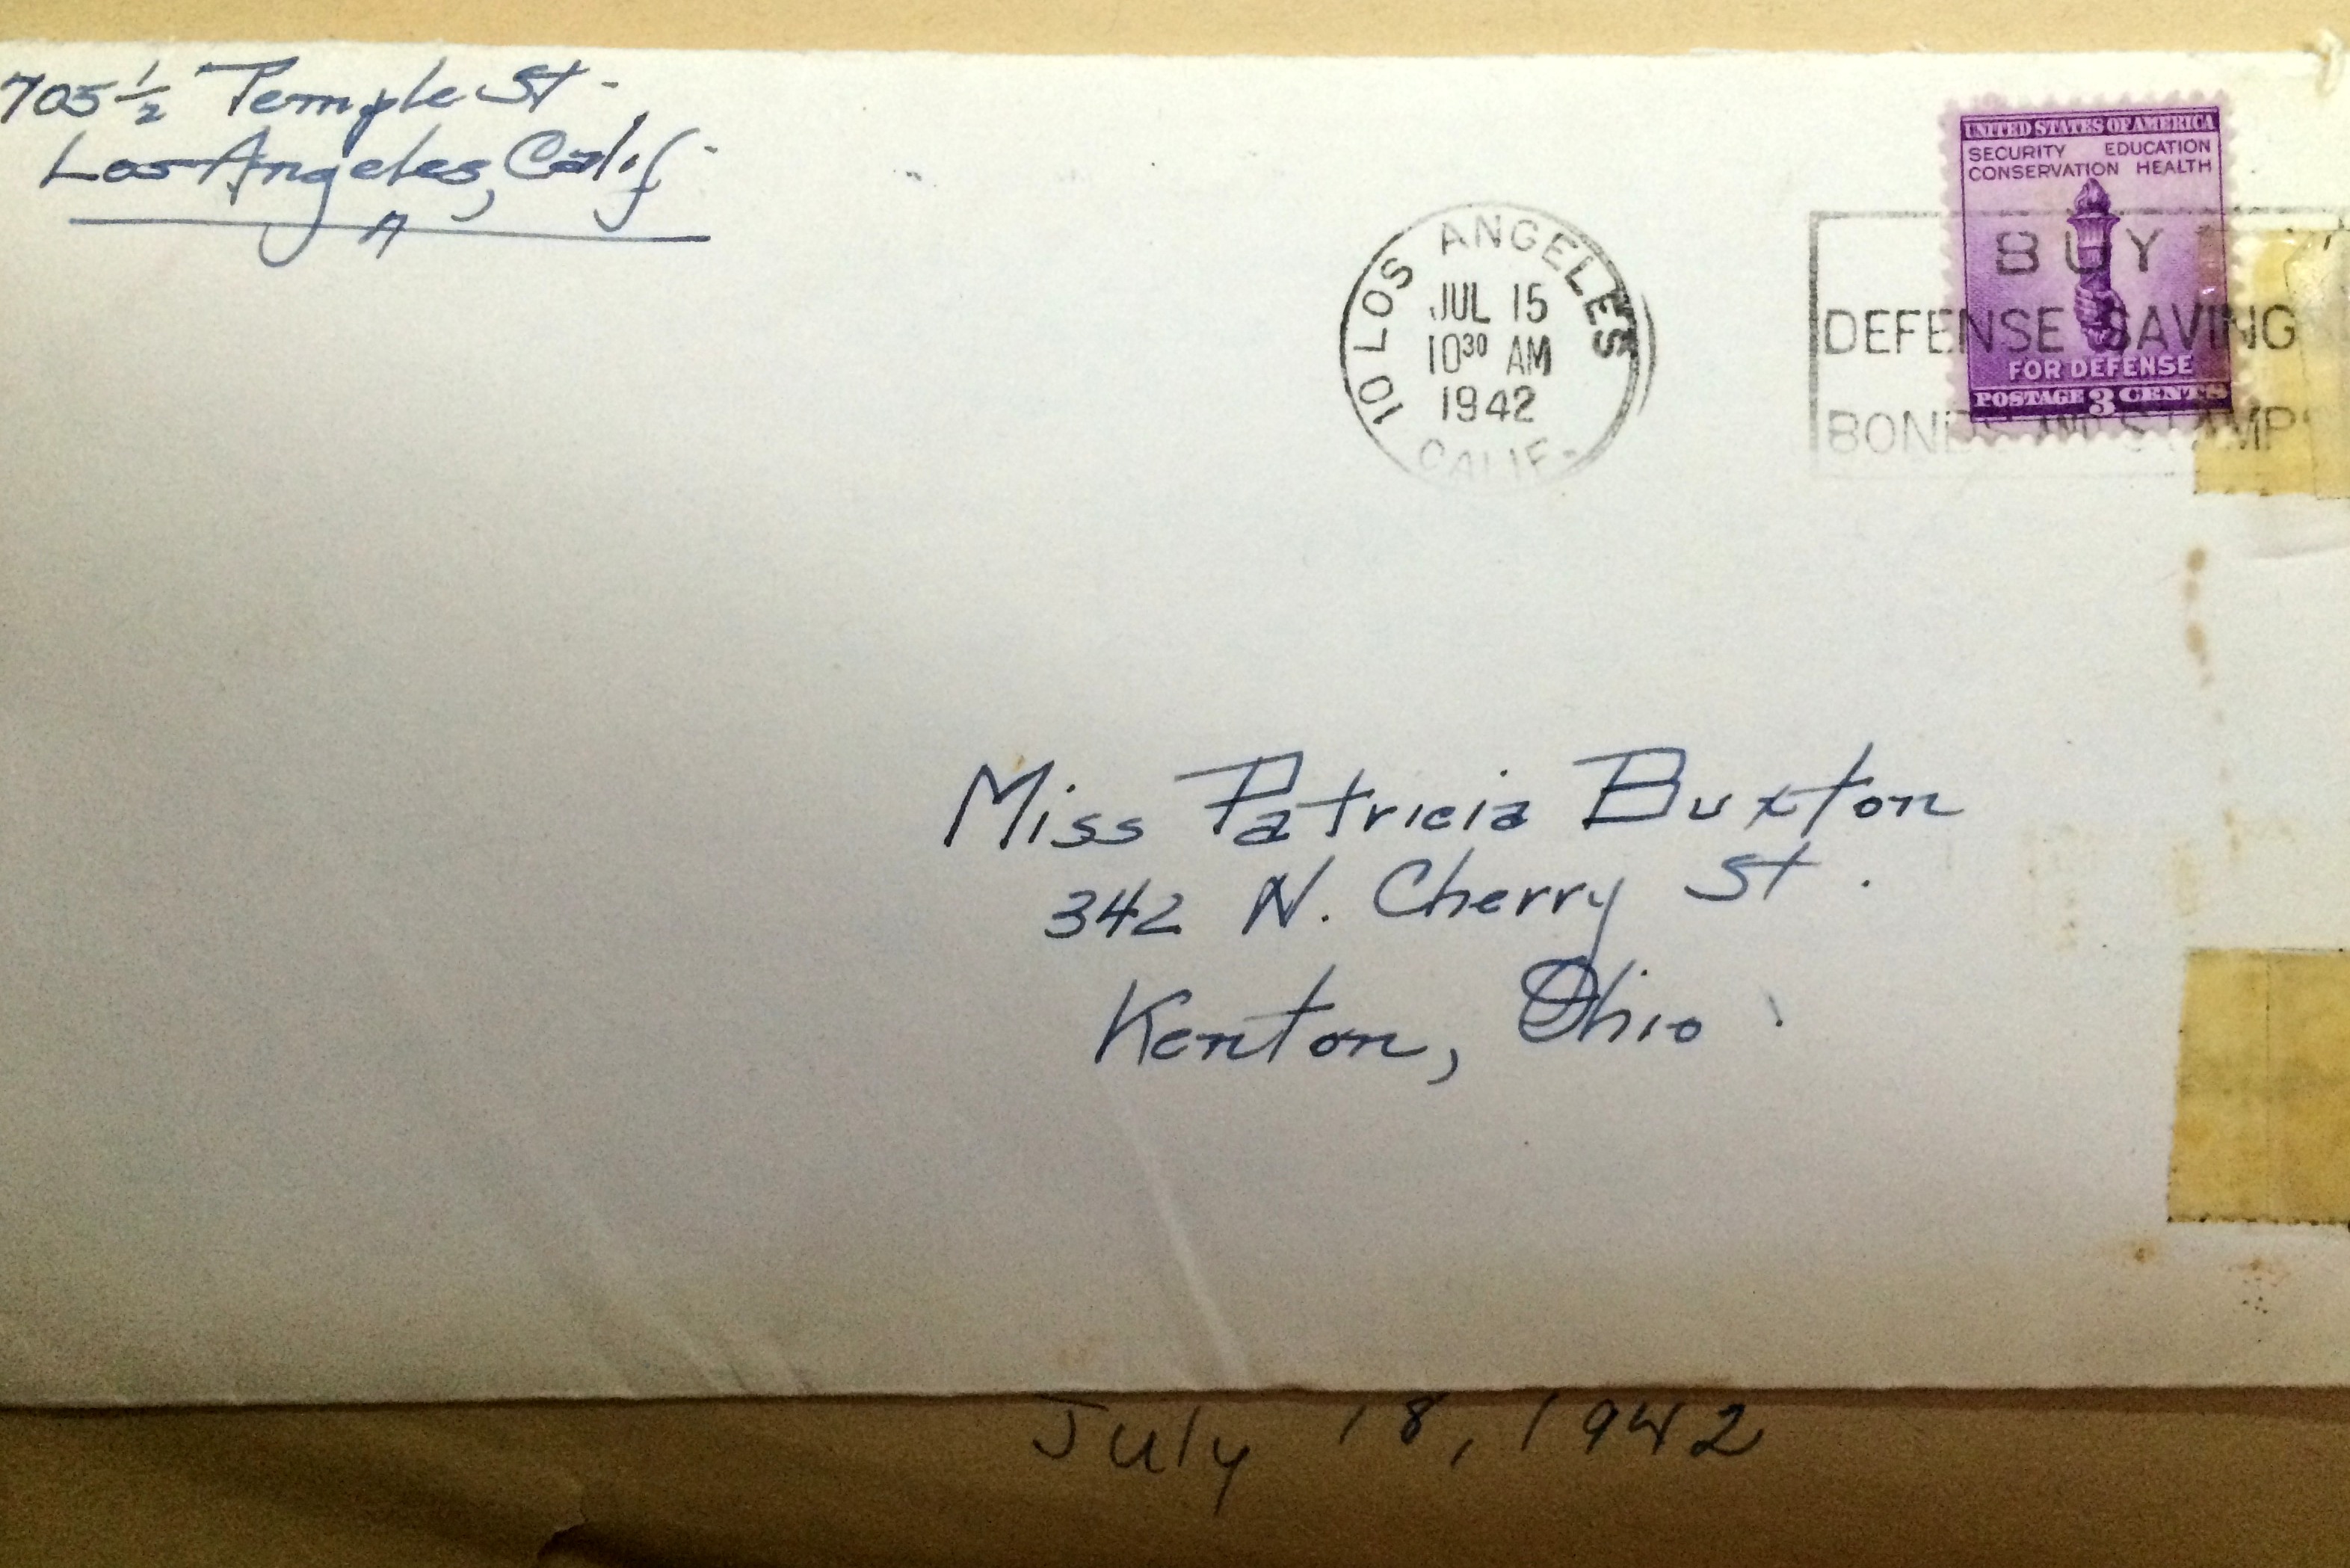 705 1/2 Temple St -
Los Angeles, Calif -
10 LOS ANGELES
JUL 15
10³⁰ AM
1942
CALIF-
UNITED STATES OF AMERICA
SECURITY EDUCATION
CONSERVATION HEALTH
FOR DEFENSE
POSTAGE 3 CENTS
BUY
DEFENSE SAVING
BONDS AND STAMPS
Miss Patricia Buxton
342 N. Cherry St.
Kenton, Ohio.
July 18, 1942